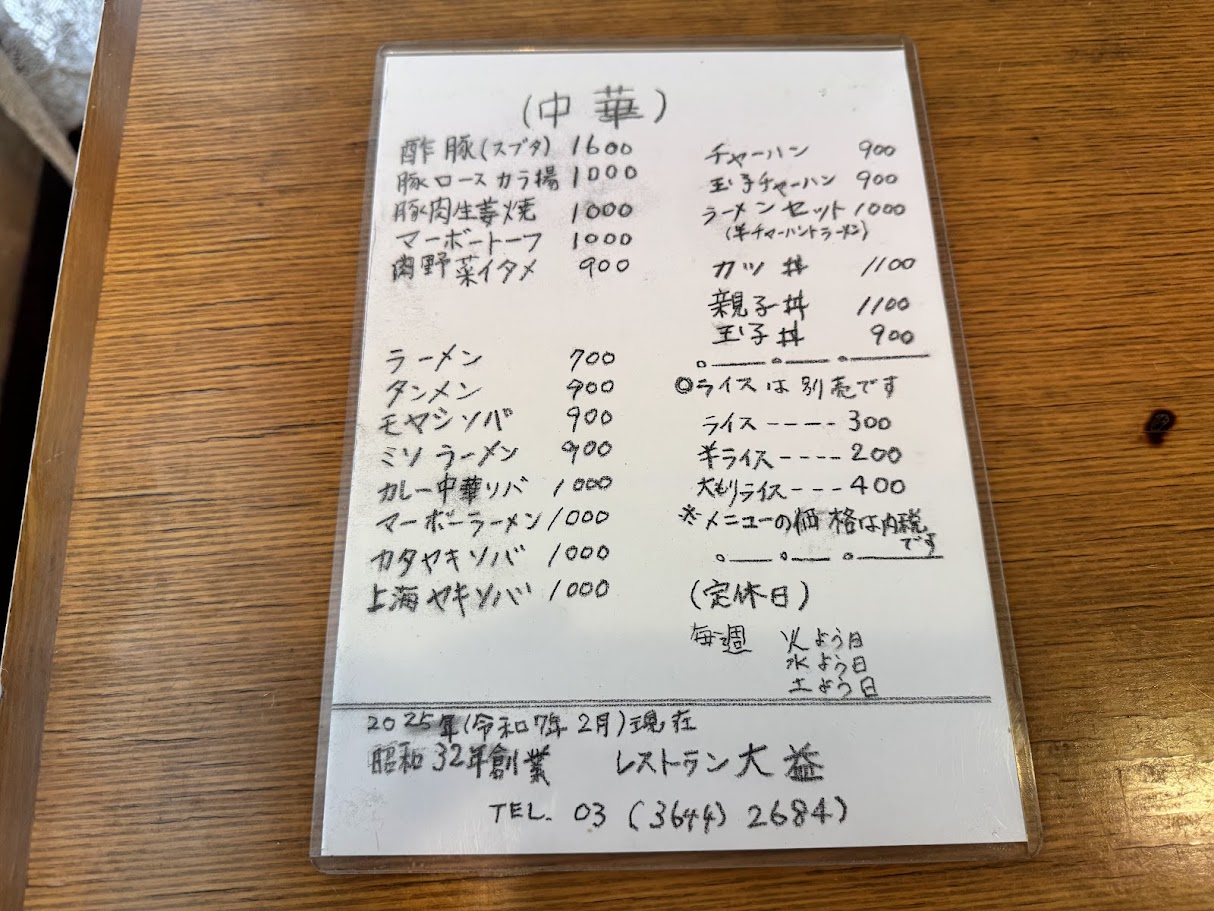 (中華)
酢豚(スブタ) 1600
豚ロースカラ揚 1000
豚肉生姜焼 1000
マーボートーフ 1000
肉野菜イタメ 900
ラーメン 700
タンメン 900
モヤシソバ 900
ミソラーメン 900
カレー中華ソバ 1000
マーボーラーメン 1000
カタヤキソバ 1000
上海ヤキソバ 1000
チャーハン 900
玉子チャーハン 900
ラーメンセット 1000
(半チャーハントラーメン)
カツ丼 1100
親子丼 1100
玉子丼 900
◎ライスは別売です
ライス---- 300
半ライス---- 200
大もりライス--- 400
※メニューの価格は内税
です
(定休日)
毎週 火よう日
水よう日
土よう日
2025年(令和7年2月)現在
昭和32年創業 レストラン大益
TEL. 03 (3644) 2684)